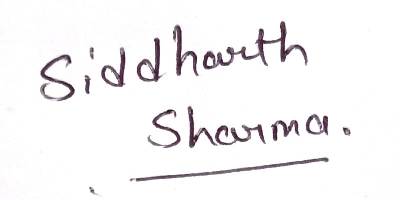 Siddharth
Sharma.